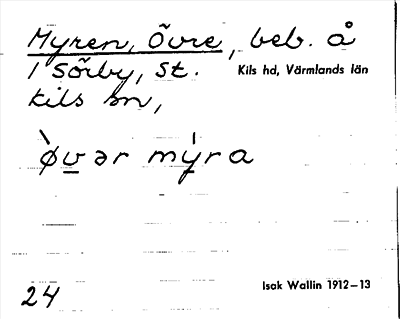 Myren, Övre, beb. å
1 Sörby, St.
Kils hd, Värmlands län
Kils sn,
ø̀vər mýra
24
Isak Wallin 1912–13